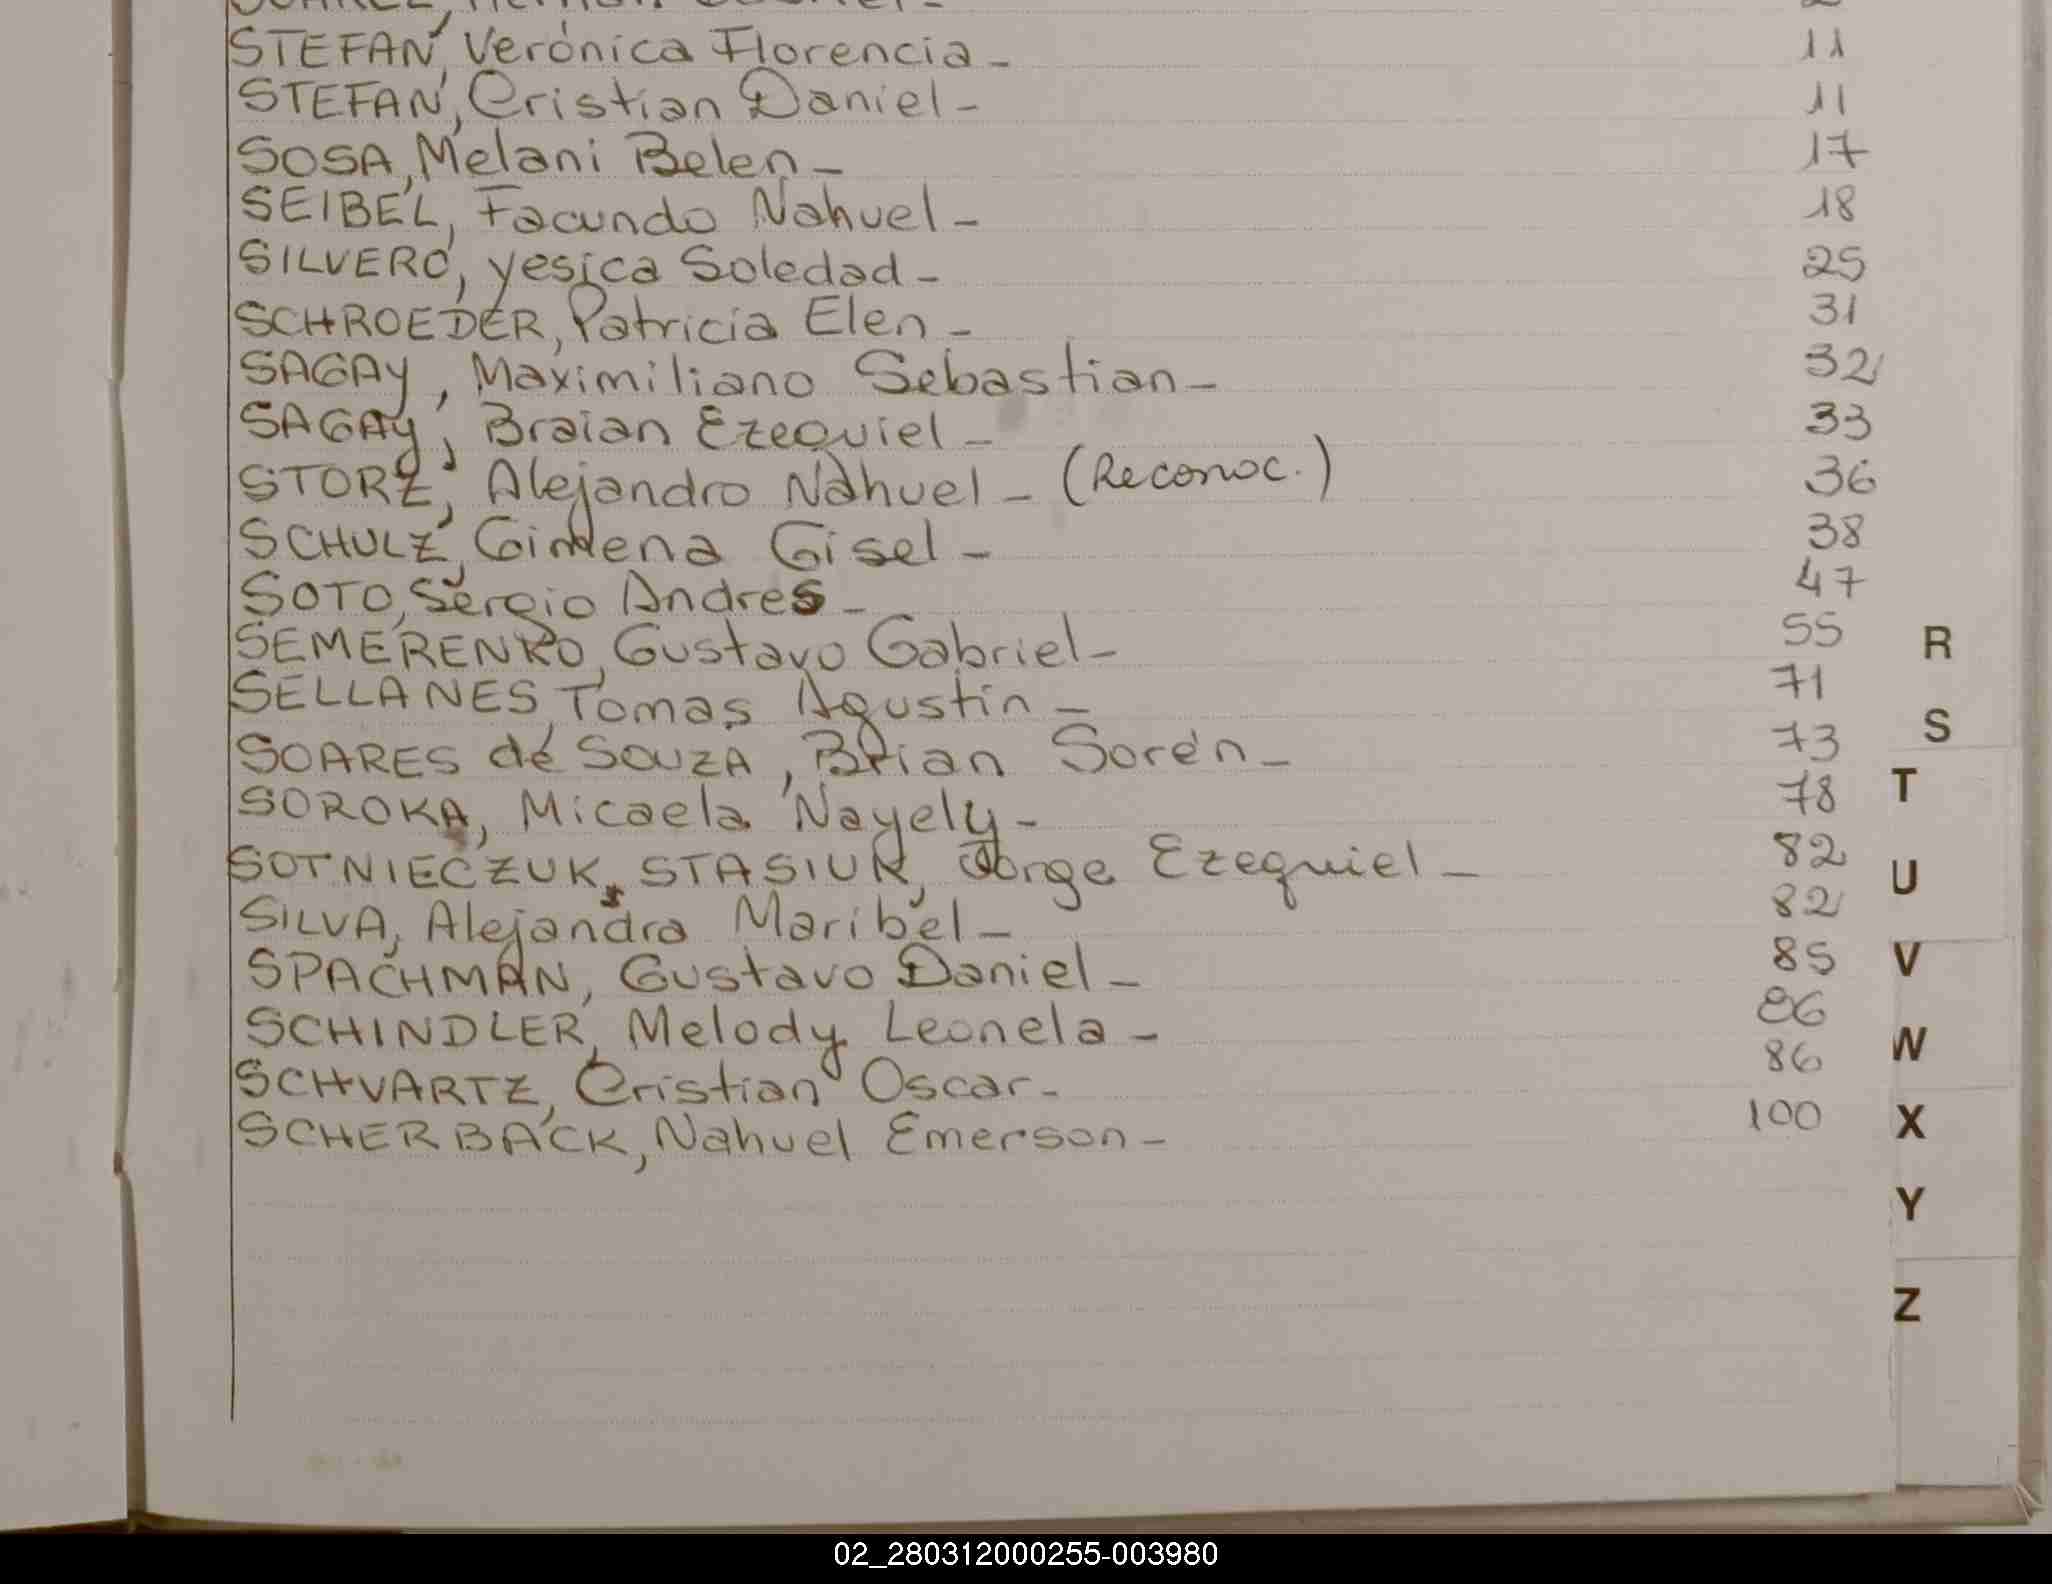 STEFAN, Verónica Florencia - 11
STEFAN, Cristian Daniel - 11
SOSA, Melani Belen - 17
SEIBEL, Facundo Nahuel - 18
SILVERO, yesica Soledad - 25
SCHROEDER, Patricia Elen - 31
SAGAY, Maximiliano Sebastian - 32
SAGAY, Braian Ezequiel - 33
STORZ, Alejandro Nahuel - (Reconoc.) 36
SCHULZ, Gimena Gisel - 38
SOTO, Sergio Andres - 47
SEMERENKO, Gustavo Gabriel - 55
SELLANES, Tomas Agustin - 71
SOARES de SOUZA, Brian Sorén - 73
SOROKA, Micaela Nayely - 78
SOTNIECZUK STASIUK, Jorge Ezequiel - 82
SILVA, Alejandra Maribel - 82
SPACHMAN, Gustavo Daniel - 85
SCHINDLER, Melody Leonela - 86
SCHVARTZ, Cristian Oscar - 86
SCHERBACK, Nahuel Emerson - 100
R
S
T
U
V
W
X
Y
Z
02_280312000255-003980